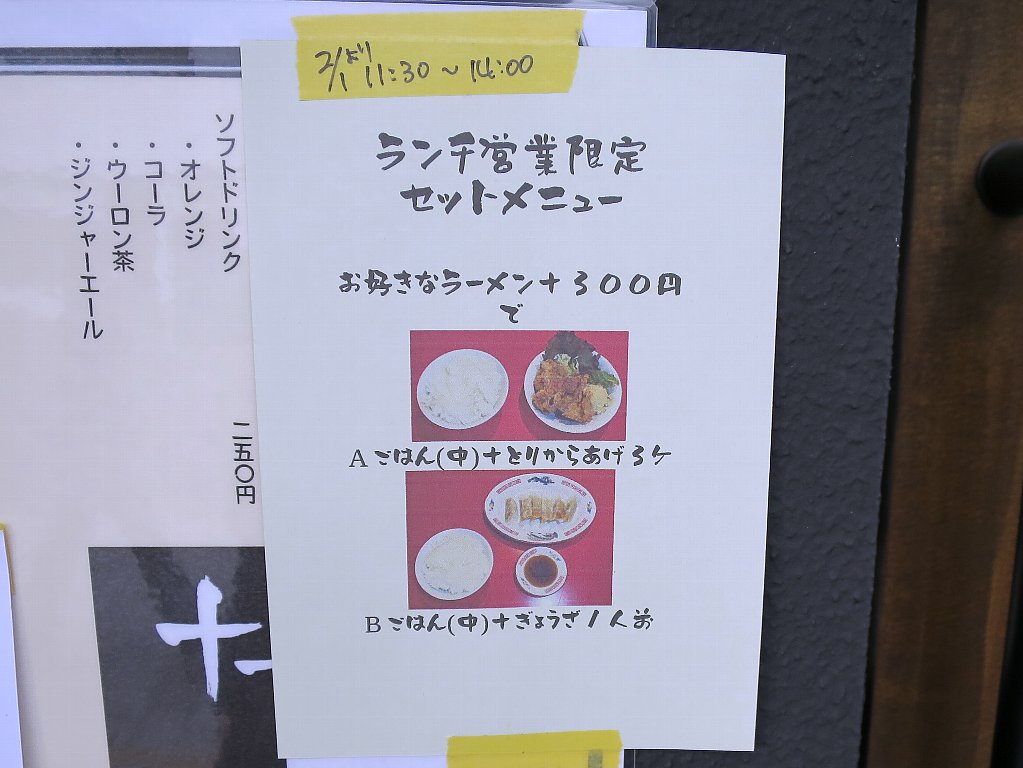 2/1より 11:30～14:00
ランチ営業限定
セットメニュー
お好きなラーメン＋３００円
で
A ごはん(中)＋とりからあげ３ケ
B ごはん(中)＋ぎょうざ１人前
ソフトドリンク
・オレンジ
・コーラ
・ウーロン茶
・ジンジャーエール
二五〇円